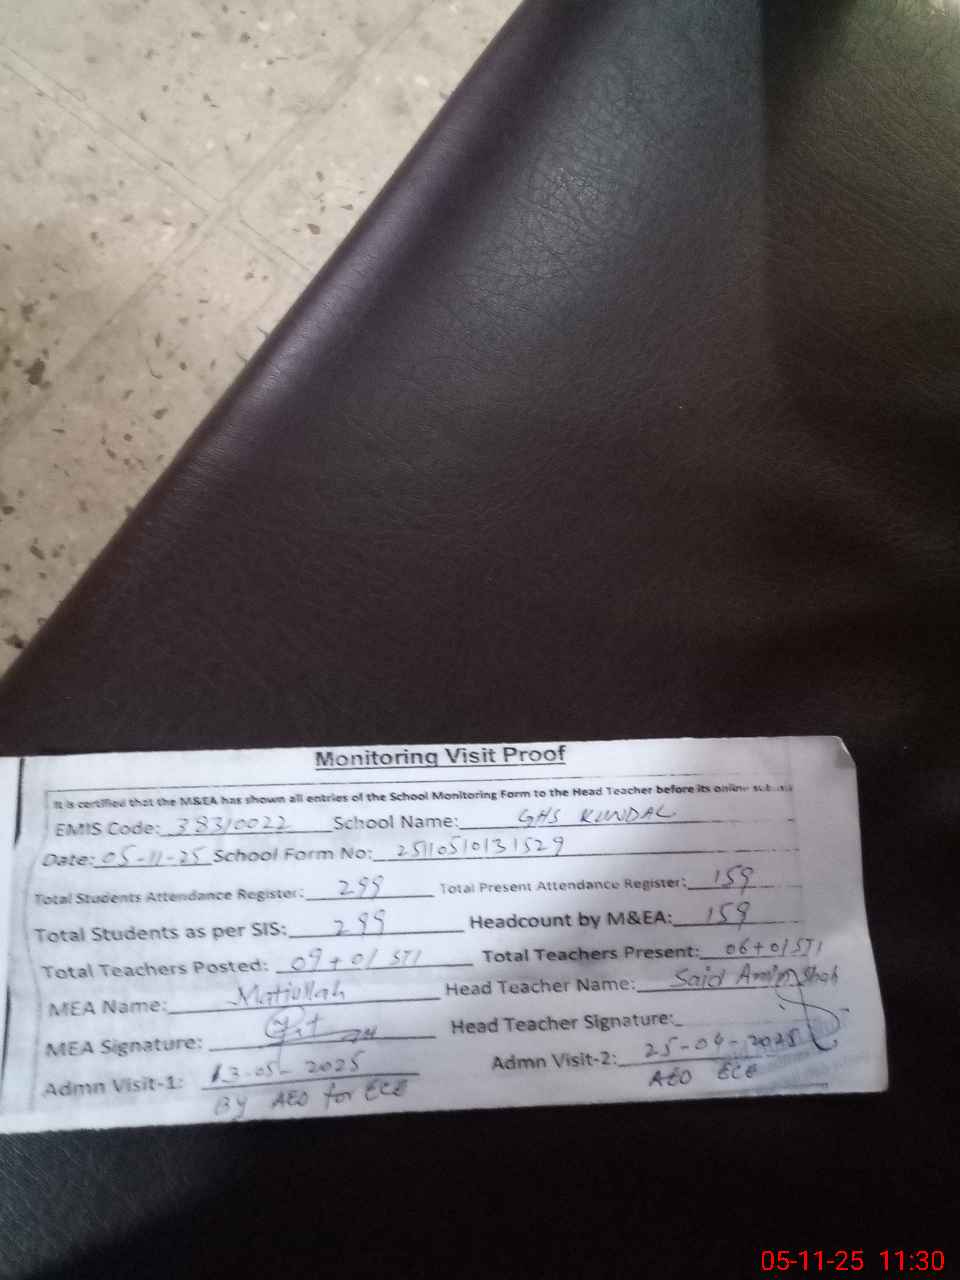 Monitoring Visit Proof
It is certified that the M&EA has shown all entries of the School Monitoring Form to the Head Teacher before its online
EMIS Code: 38310022 School Name: GHS KUNDAL
Date: 05-11-25 School Form No: 25110510131529
Total Students Attendance Register: 299 Total Present Attendance Register: 159
Total Students as per SIS: 299 Headcount by M&EA: 159
Total Teachers Posted: 09+01 STI Total Teachers Present: 06+01 STI
MEA Name: Matiullah Head Teacher Name: Said Amin Shah
MEA Signature: Head Teacher Signature:
Admn Visit-1: 13-05-2025 Admn Visit-2: 25-04-2025
By AEO for ECE AEO ECE
05-11-25 11:30